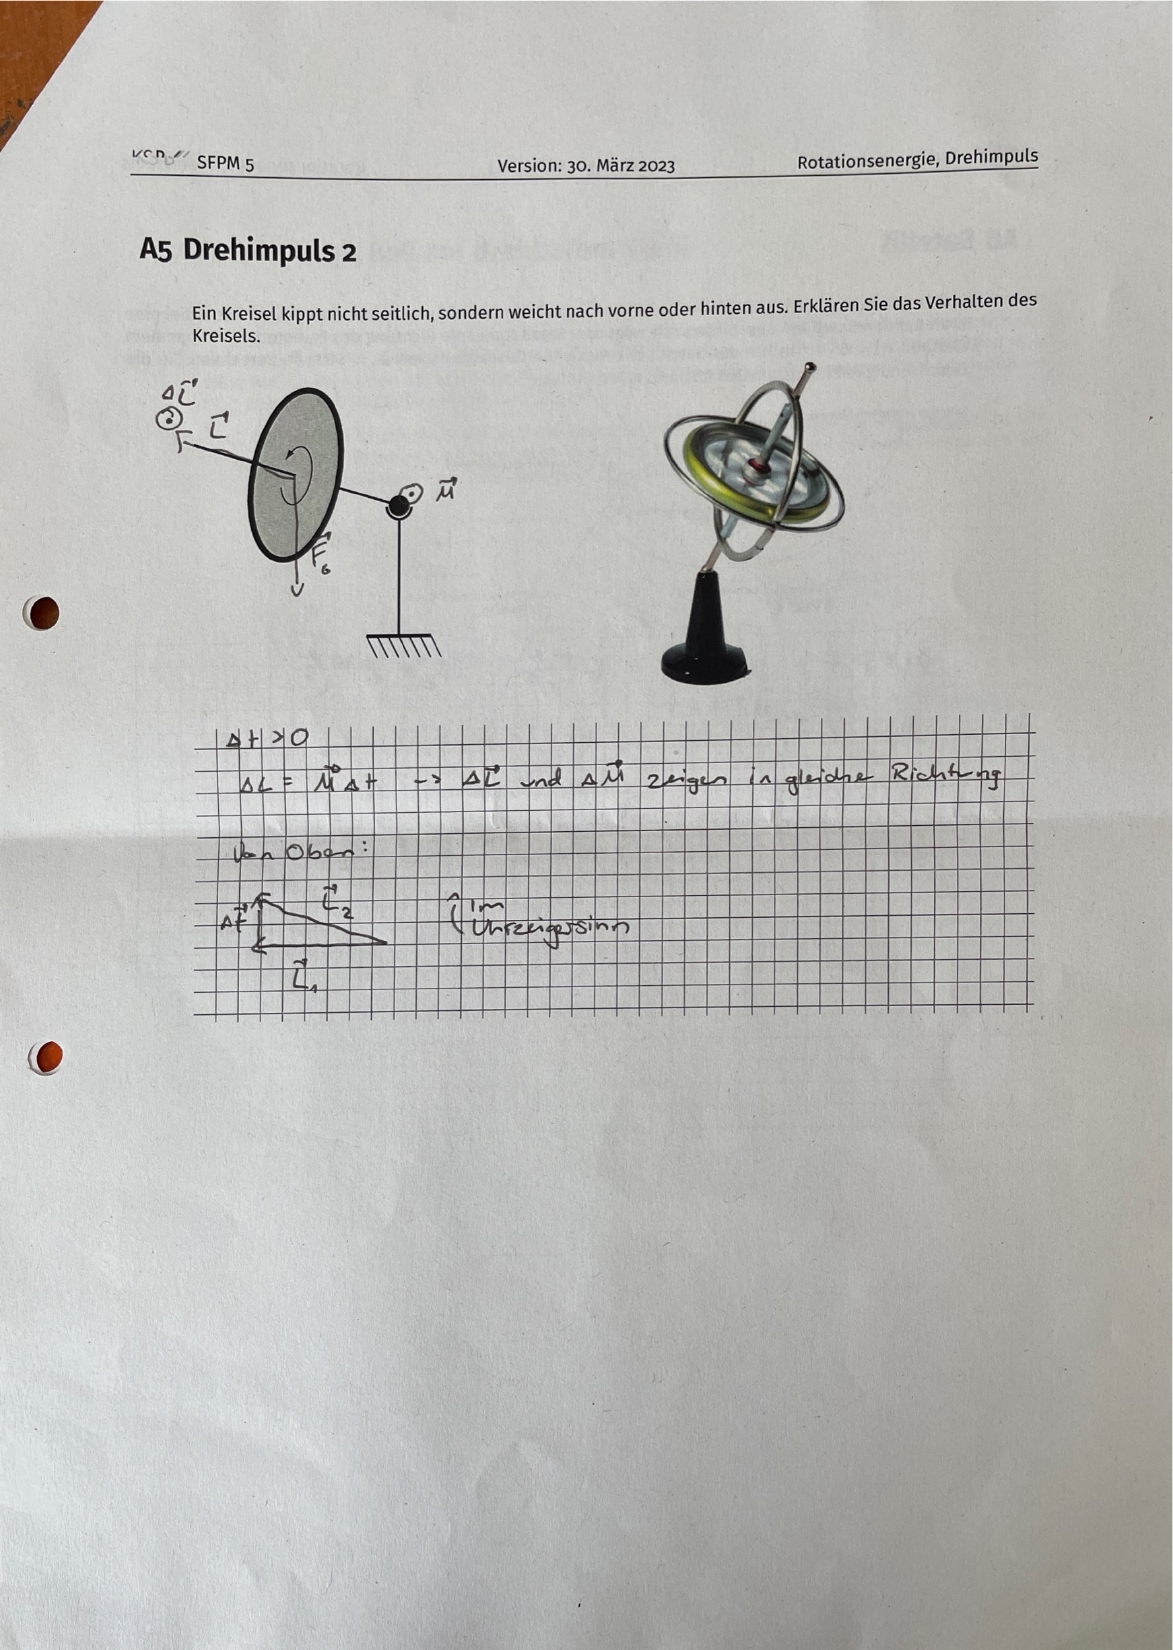 SFPM 5 Version: 30. März 2023 Rotationsenergie, Drehimpuls
A5 Drehimpuls 2
Ein Kreisel kippt nicht seitlich, sondern weicht nach vorne oder hinten aus. Erklären Sie das Verhalten des
Kreisels.
ΔL⃗
L⃗
M⃗
F⃗G
Δt >0
ΔL = M⃗ Δt -> ΔL⃗ und ΔM⃗ zeigen in gleiche Richtung
Von Oben:
L⃗2
Im
Uhrzeigersinn
L⃗1